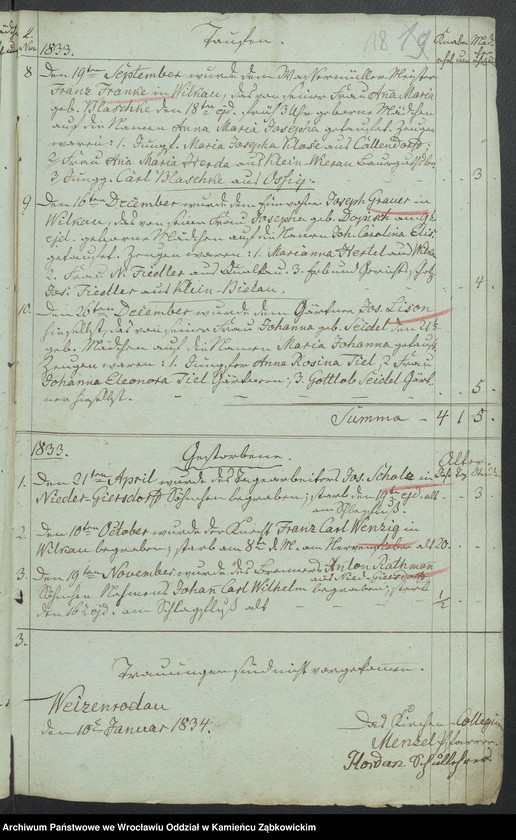 1833. Taufen. 18 19
L. Nro. Knaben Mädchen
8 Den 19ten September wurde dem Wassermüller Meister
Franz Franke in Wilkau, das von seiner Frau Ana Maria
geb. Blaschke den 18ten ejd. früh 3 Uhr geborne Mädchen
auf die Namen Anna Maria Josepha getauft. Zeugen
waren: 1. Jungf. Maria Josepha Klose aus Callendorf;
2 Frau Ana Maria Herda aus Klein Wierau
3 Jungg. Carl Blaschke aus Ossig. - 3
9 Den 16ten December wurde dem Joseph Grauer in
Wilkau, das von seiner Frau Josepha geb. am
ejd. geborne Mädchen auf die Namen Joh. Carolina Elis.
getauft. Zeugen waren: 1. Marianna Hertel aus Wilkau
2. Frau N. Fiedler aus 3. Erb und Gericht
Jos: Fiedler aus Klein-Bielau. - 4
10. Den 26ten December wurde dem Gärtner Jos. Lison
hieselbst, das von seiner Frau Johanna geb. Seidel den 21t
geb. Mädchen auf die Namen Maria Johanna getauft.
Zeugen waren: 1. Jungfer Anna Rosina Tiel, 2 Frau
Johanna Eleonora Tiel Gärtnerin; 3. Gottlob Seidel Gärt-
ner hieselbst. - 5
Summa - 4 1 5
1833. Gestorbene. Alter
1. Den 21ten April wurde des Tagearbeiters Jos. Scholz in
Nieder-Giersdorff Söhnchen begraben; starb den 19ten ejd. alt - 3 -
am Schlagfluß.
2. Den 10ten October wurde der Knecht Franz Carl Wenzig in
Wilkau begraben; starb am 8ten d. M. am Nervenfieber alt 20. - -
3. Den 19ten November wurde des Anton Rathman
aus Nied-Giersdorf
Söhnchen Nahmens Johan Carl Wilhelm begraben; starb
den 16t ejd. am Schlagfluß alt - - - ½ - -
3.
Trauungen sind nicht vorgekommen.
Weizenrodau
den 10te Januar 1834.
Das Kirchen-Collegium
Menzel Pfarrer.
Hordan Schullehrer
Archiwum Państwowe we Wrocławiu Oddział w Kamieńcu Ząbkowickim